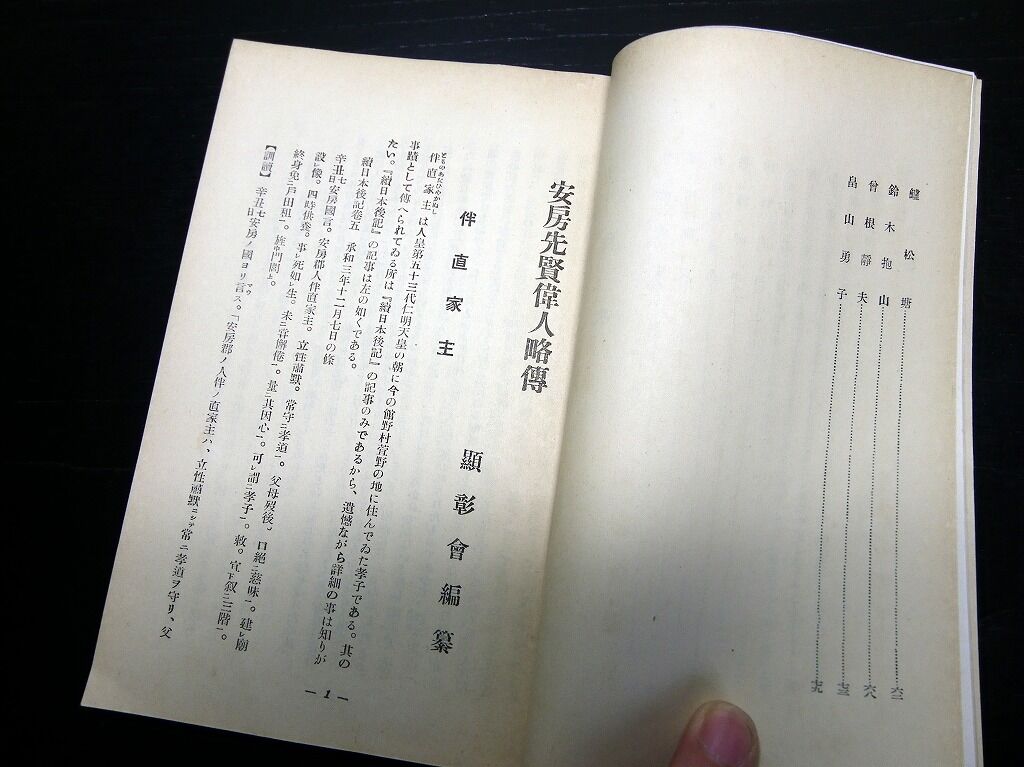 鱸松塘……六二
鈴木抱山……六八
曾根靜夫……七三
畠山勇子……七九
安房先賢偉人略傳
顯彰會編纂
伴直家主
伴直家主は人皇第五十三代仁明天皇の朝に今の館野村菅野の地に住んでゐた孝子である。其の
事蹟として傳へられてゐる所は『續日本後記』の記事のみであるから、遺憾ながら詳細の事は知りが
たい。『續日本後記』の記事は左の如くである。
續日本後記卷五 承和三年十二月七日の條
辛丑七日安房國言。安房郡人伴直家主。立性肅默。常守二孝道一。父母歿後。口絕二慈味一。建レ廟
設レ像。四時供養。事レ死如レ生。未二嘗懈倦一。量二其因心一。可レ謂二孝子一。敕。宜下叙二三階一。
終身免二戸田租一。旌中門閭上。
【訓讀】 辛丑七日安房ノ國ヨリ言マウス。「安房郡ノ人伴ノ直家主ハ、立性肅默ニシテ常ニ孝道ヲ守リ、父
— 1 —